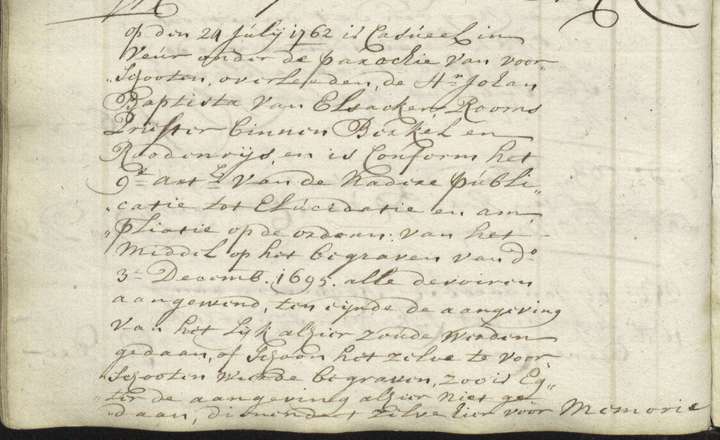 op den 24 Julÿ 1762 is Casueel in
Veur onder de parochie van voor„
„schooten, overleeden, de Hr. Johan
Baptista van Elsacker, Rooms
Priester binnen Berkel en
Roodenrijs, en is Conform het
9e. artl. van de Nadere publi„
„catie tot Elucidatie en am„
„pliatie op de ordonn: van het
Middel op het begraven van do.
3e. Decemb. 1695. alle devoiren
aangewend, ten eijnde de aangeving
van het Lijk alhier zoude werden
gedaan, of schoon het zelve te voor„
„schooten wierde begraven, zoo is Eg„
„ter de aangeving alhier niet ge„
„daan, dienende 't zelve hier voor Memorie